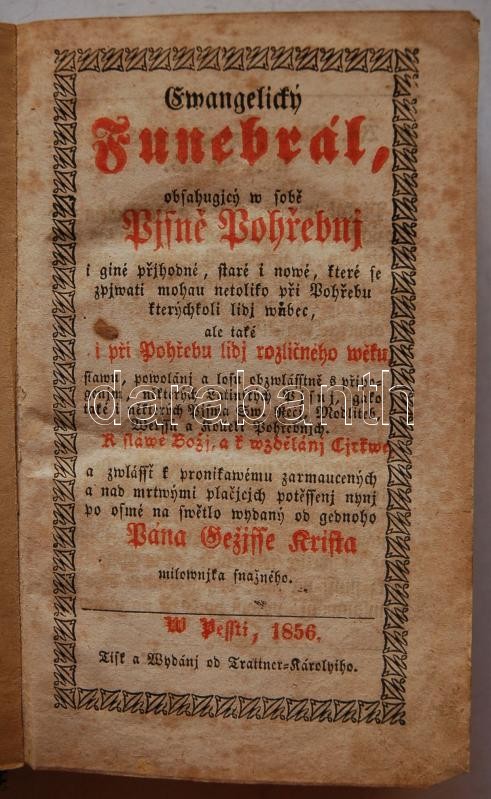 Ewangelický
Funebrál,
obsahugjcý w sobě
Pjsně Pohřebnj
i giné přjhodné, staré i nowé, které se
zpjwati mohau netoliko při Pohřebu
kterýchkoli lidj wůbec,
ale také
i při Pohřebu lidj rozličného wěku
stawu, powolánj a losu obzwlásstně s přip
některých Latinských Pjsnj, gako
také i některých Pjsma Sw. řečj Modliteb,
Weršů a Pohřebnjch.
K sláwě Božj, a k wzdělánj Cjrkwe
a zwlásst k pronikawému zarmaucených
a nad mrtwými plačjcjch potěssenj nynj
po osmé na swětlo wydaný od gednoho
Pána Gežjsse Krista
milownjka snažného.
W Pessti, 1856.
Tisk a Wydánj od Trattner-Károlyiho.
darabanth